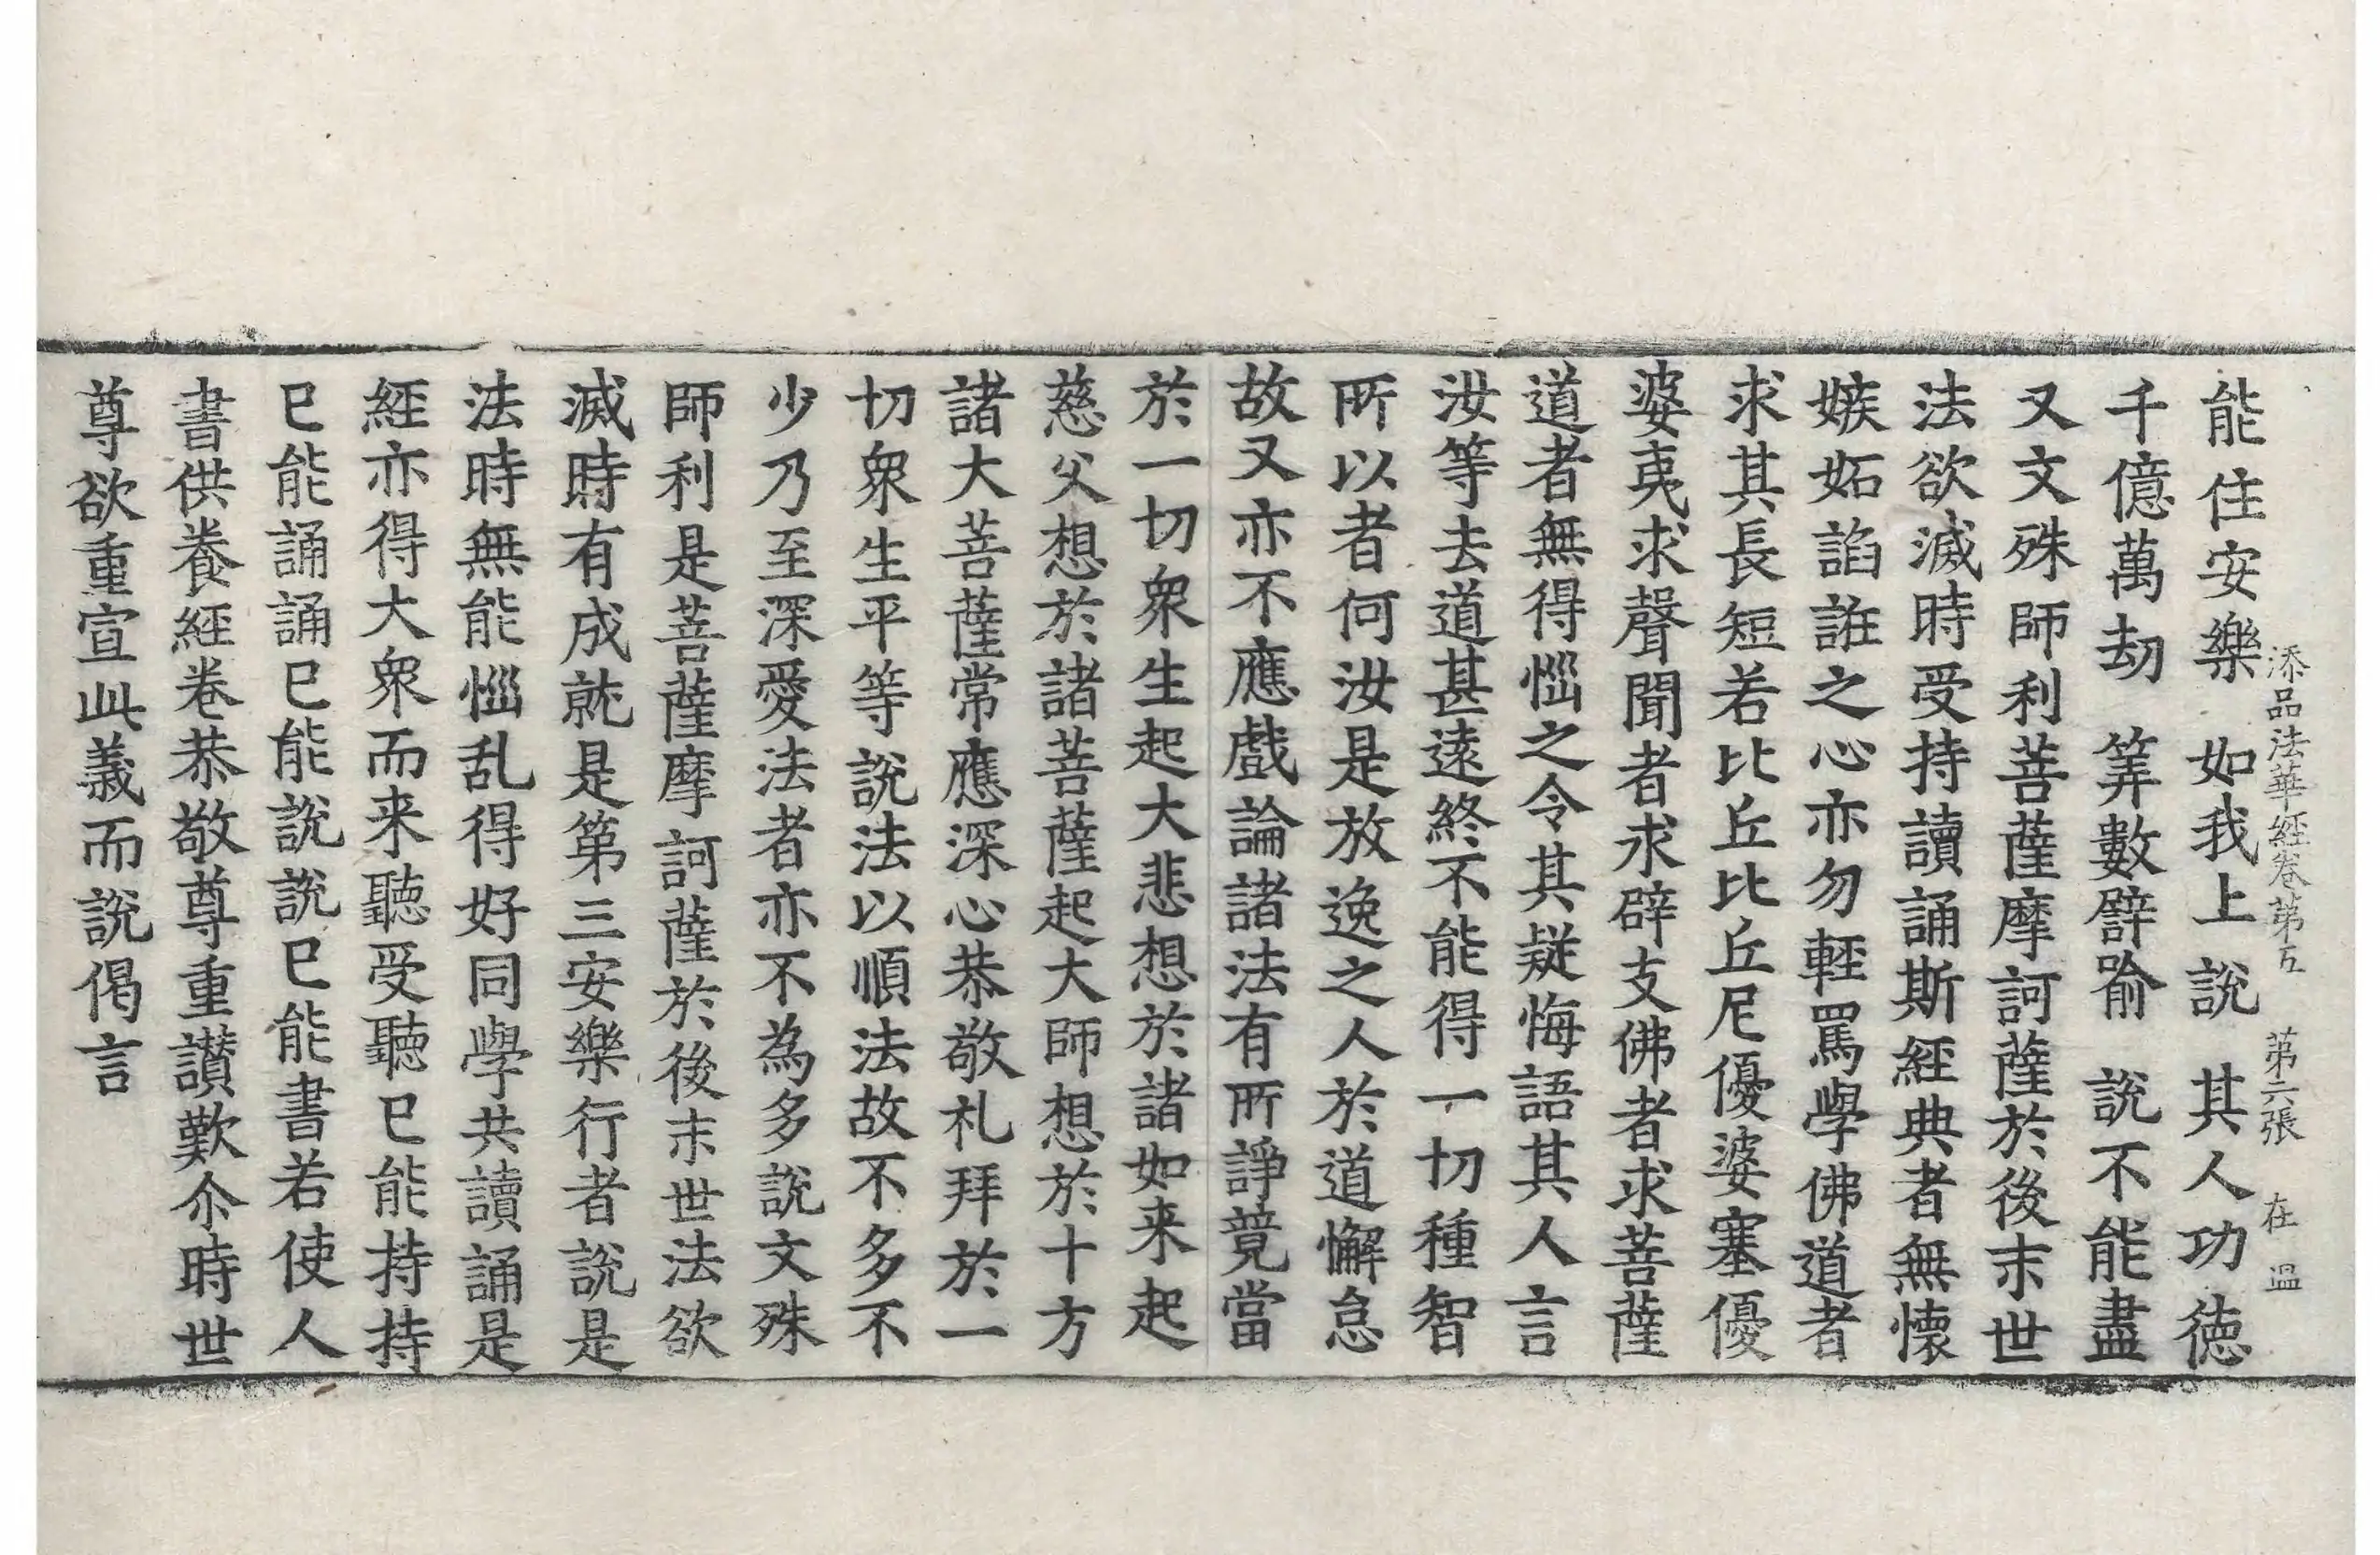 添品法華經卷第五 第六張 在 温
能住安樂 如我上說 其人功德
千億萬劫 筭數譬喻 說不能盡
又文殊師利菩薩摩訶薩於後末世
法欲滅時受持讀誦斯經典者無懷
嫉妬諂誑之心亦勿輕罵學佛道者
求其長短若比丘比丘尼優婆塞優
婆夷求聲聞者求辟支佛者求菩薩
道者無得惱之令其疑悔語其人言
汝等去道甚遠終不能得一切種智
所以者何汝是放逸之人於道懈怠
故又亦不應戲論諸法有所諍競當
於一切衆生起大悲想於諸如来起
慈父想於諸菩薩起大師想於十方
諸大菩薩常應深心恭敬礼拜於一
切衆生平等說法以順法故不多不
少乃至深愛法者亦不為多說文殊
師利是菩薩摩訶薩於後末世法欲
滅時有成就是第三安樂行者說是
法時無能惱乱得好同學共讀誦是
經亦得大衆而来聽受聽已能持持
已能誦誦已能說說已能書若使人
書供養經卷恭敬尊重讃歎尒時世
尊欲重宣此義而說偈言